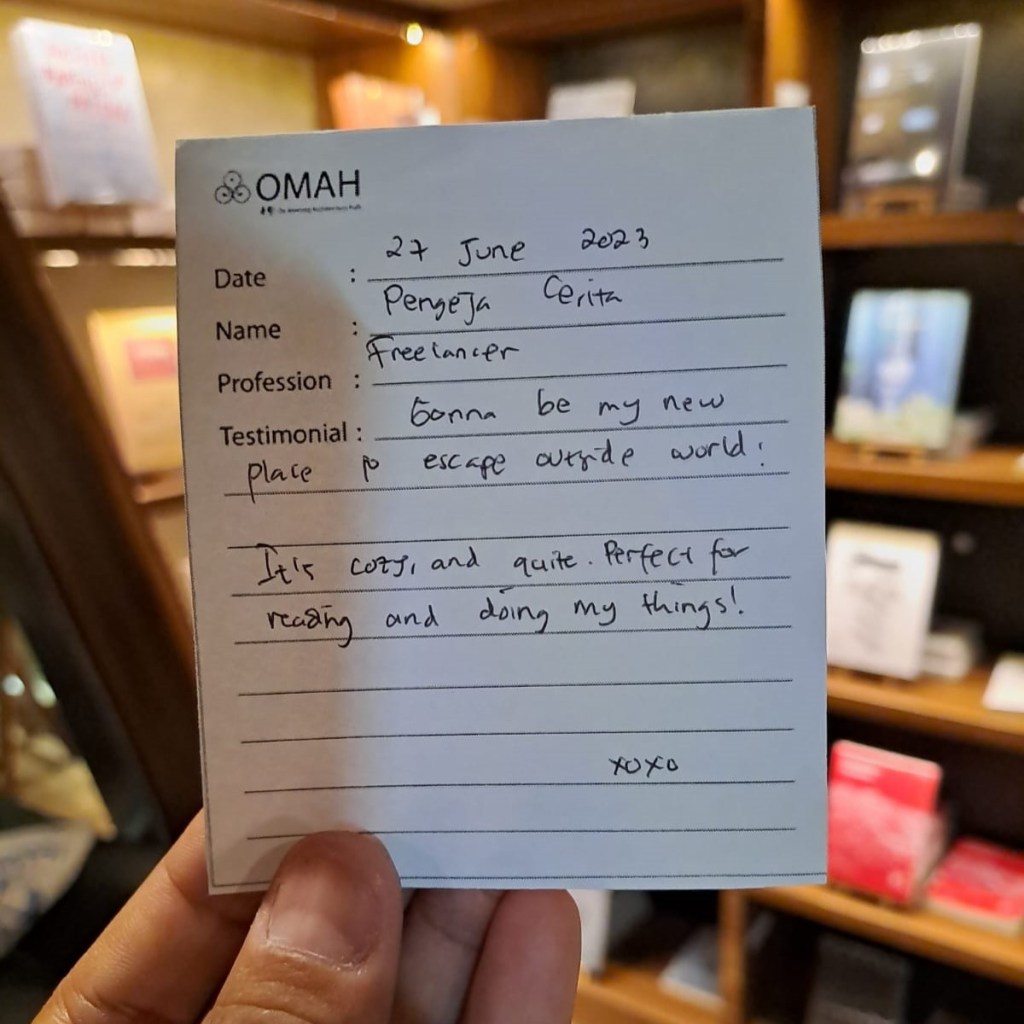 OMAH
Date : 27 June 2023
Name : Pengeja Cerita
Profession : Freelancer
Testimonial : Gonna be my new
place to escape outside world!
It's cozy, and quite. Perfect for
reading and doing my things!
xoxo